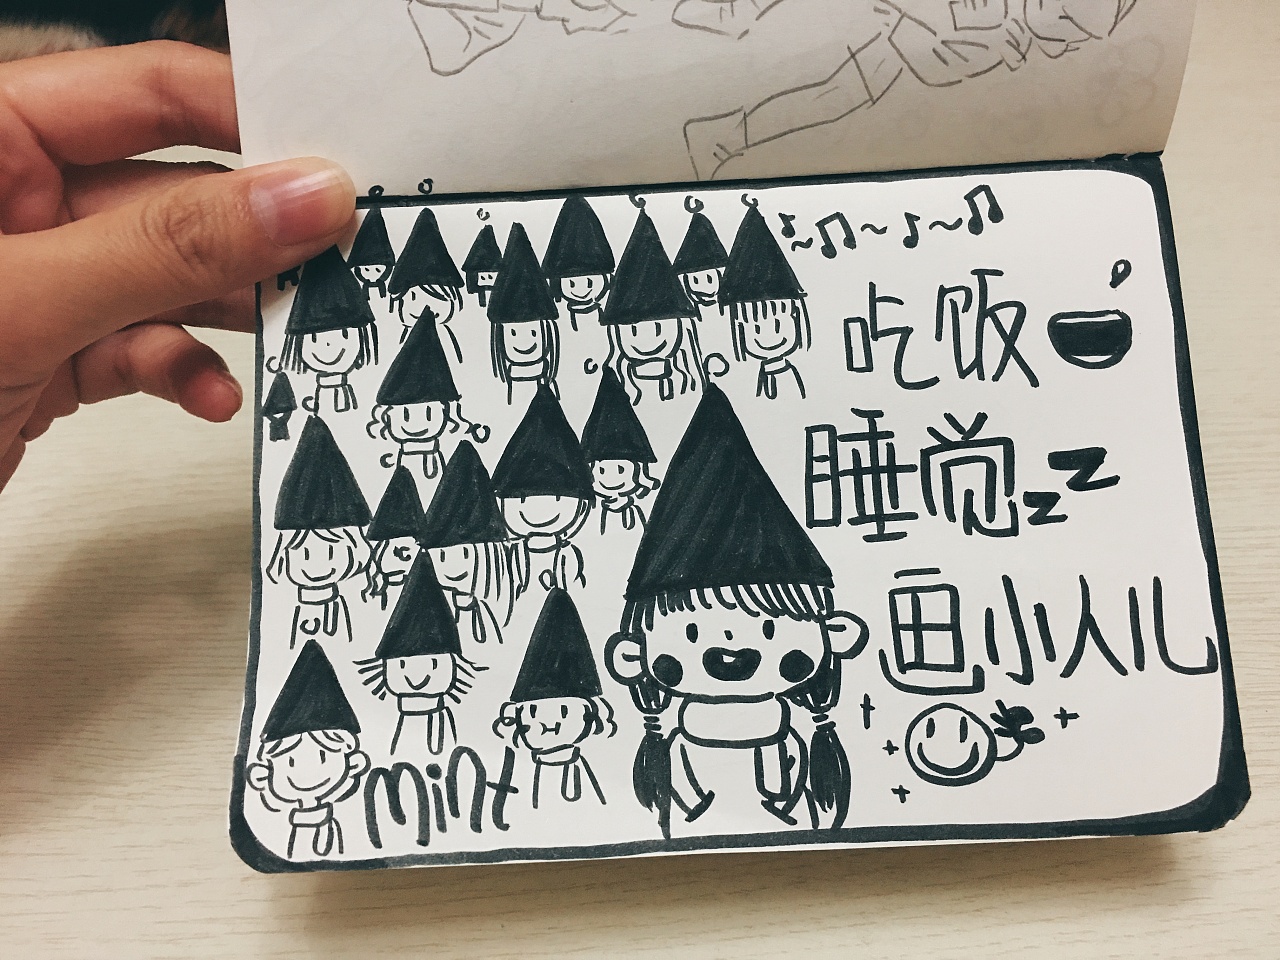 吃饭
睡觉zz
画小人儿
mint